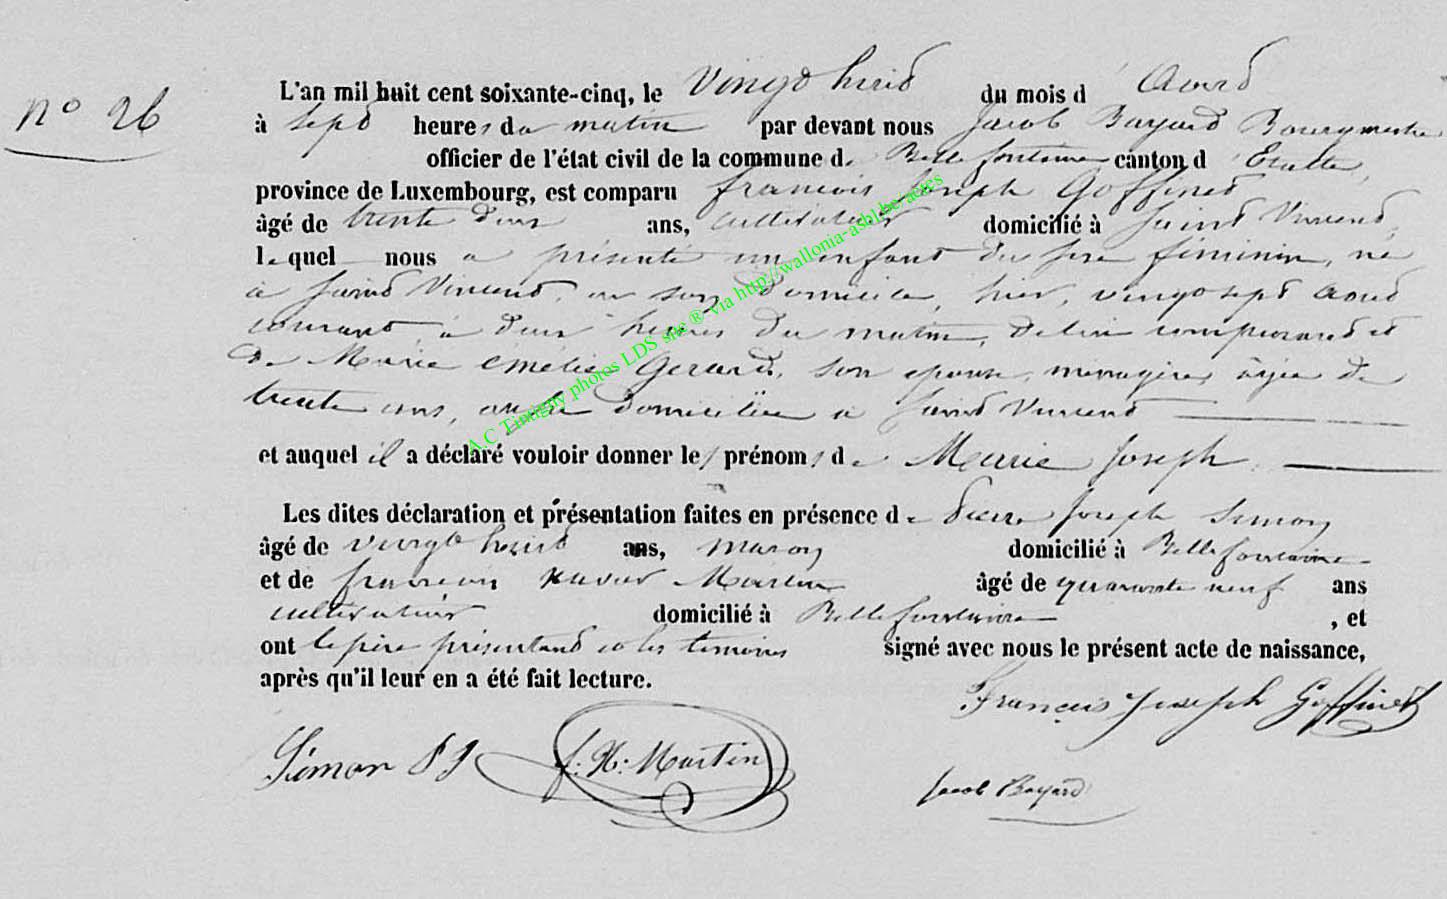 N° 26
L'an mil huit cent soixante-cinq, le Vingt huit du mois d'Aout
à sept heures du matin par devant nous Jacob Bayard Bourgmestre
officier de l'état civil de la commune de Bellefontaine canton d'Etalle
province de Luxembourg, est comparu francois Joseph Goffinet
âgé de trente deux ans, cultivateur domicilié à Saint Vincent,
lequel nous a présenté un enfant du sexe féminin, né
à Saint Vincent, en son domicile, hier, vingt sept Aout
courant, à deux heures du matin, de lui comparant et
de Marie Emelie Gerard, son epouse, menagère, agée de
trente ans, domiciliée à Saint Vincent
et auquel il a déclaré vouloir donner les prénoms de Marie Joseph.
Les dites déclaration et présentation faites en présence de Pierre Joseph Simon
âgé de vingt huit ans, maçon domicilié à Bellefontaine
et de francois xavier Martin âgé de quarante neuf ans
cultivateur domicilié à Bellefontaine, et
ont le père présentant et les temoins signé avec nous le présent acte de naissance,
après qu'il leur en a été fait lecture.
François Joseph Goffinet
Simon PJ f. X. Martin
Jacob Bayard
A.C Tintigny photos LDS site ® via http://wallonia-asbl.be/actes